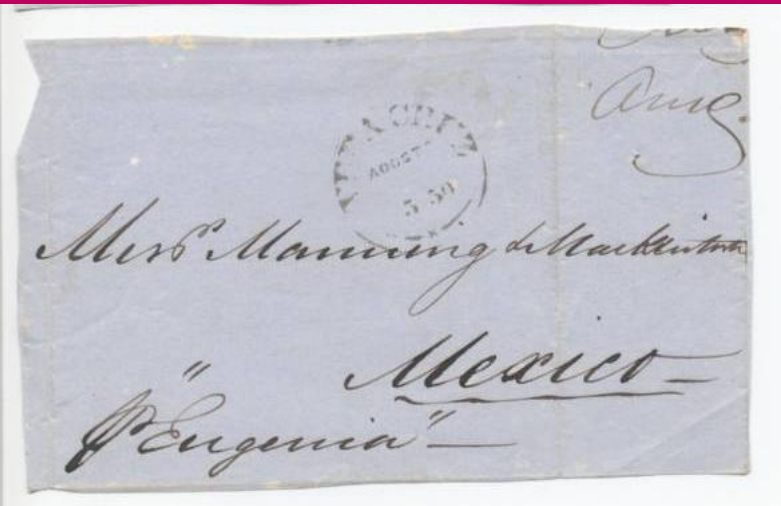 VERA CRUZ
AGOSTO
5 50
Messrs Manning & Mackintosh
Mexico
p "Eugenia"